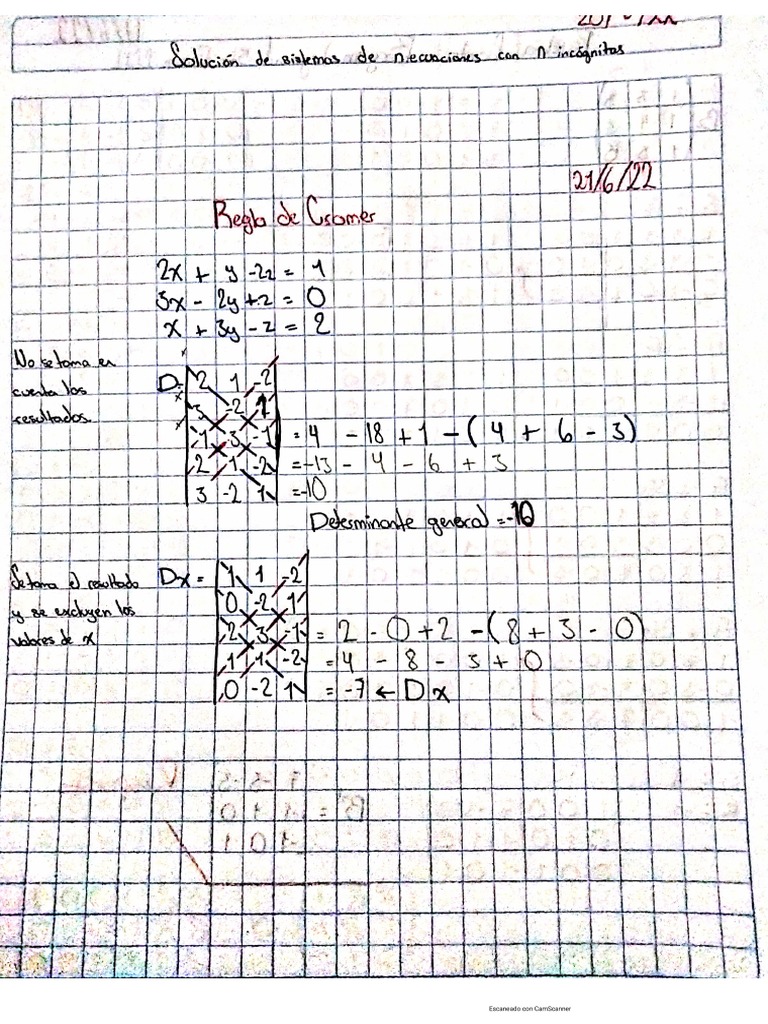 Solución de sistemas de n ecuaciones con n incógnitas
21/6/22
Regla de Cramer
2x + y - 2z = 1
3x - 2y + z = 0
x + 3y - z = 2
No se toma en
cuenta los
resultados.
D=
2 1 -2
3 -2 1
1 3 -1 = 4 - 18 + 1 - (4 + 6 - 3)
2 1 -2 = -13 - 4 - 6 + 3
3 -2 1 = -10
Determinante general = -10
Se toma el resultado
y se excluyen los
valores de x
Dx =
1 1 -2
0 -2 1
2 3 -1 = 2 - 0 + 2 - (8 + 3 - 0)
1 1 -2 = 4 - 8 - 3 + 0
0 -2 1 = -7 ← Dx
Escaneado con CamScanner